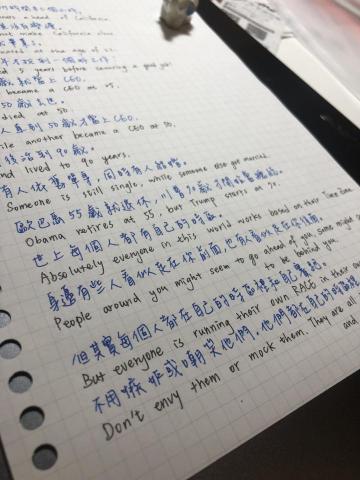 a head of California
make California slow
的畢業了。
at the age of 22.
5 years before securing a good job!
歲就當上 CEO,
became a CEO at 25.
50歲去世。
died at 50.
人直到50歲才當上CEO,
while another became a CEO at 50.
後活到90歲。
and lived to 90 years.
有人依舊單身, 同時有人結婚。
Someone is still single, while someone else got married.
歐巴馬55歲就退休, 川普70歲才開始當總統。
Obama retires at 55, but Trump starts at 70.
世上每個人都有自己的時區。
Absolutely everyone in this world works based on their Time Zone.
身邊有些人看似走在你前面, 也有人看似走在你後面。
People around you might seem to go ahead of you, some might
to be behind you.
但其實每個人都在自己的時區裡和記
But everyone is running their own RACE in their own
不用嫉妒或嘲笑他們, 他們都在自己的時區裡
Don't envy them or mock them. They are
and